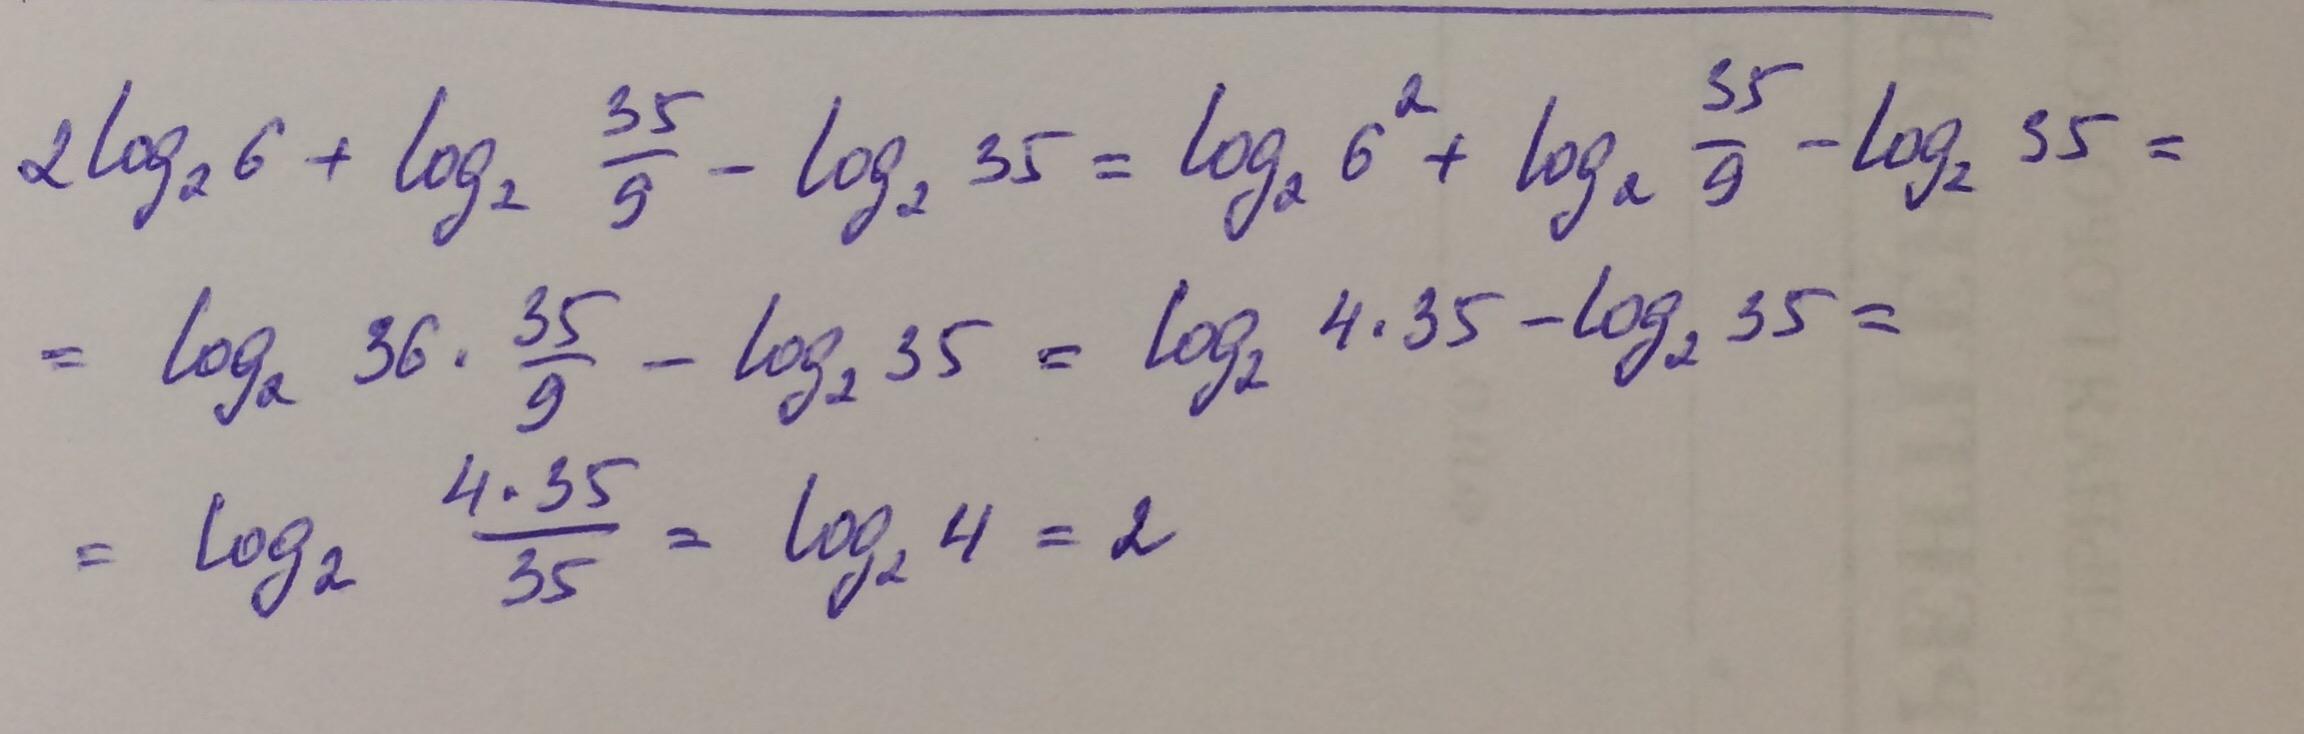 2log₂6 + log₂ 35/9 - log₂ 35 = log₂ 6² + log₂ 35/9 - log₂ 35 =
= log₂ 36 · 35/9 - log₂ 35 = log₂ 4·35 - log₂ 35 =
= log₂ 4·35/35 = log₂ 4 = 2